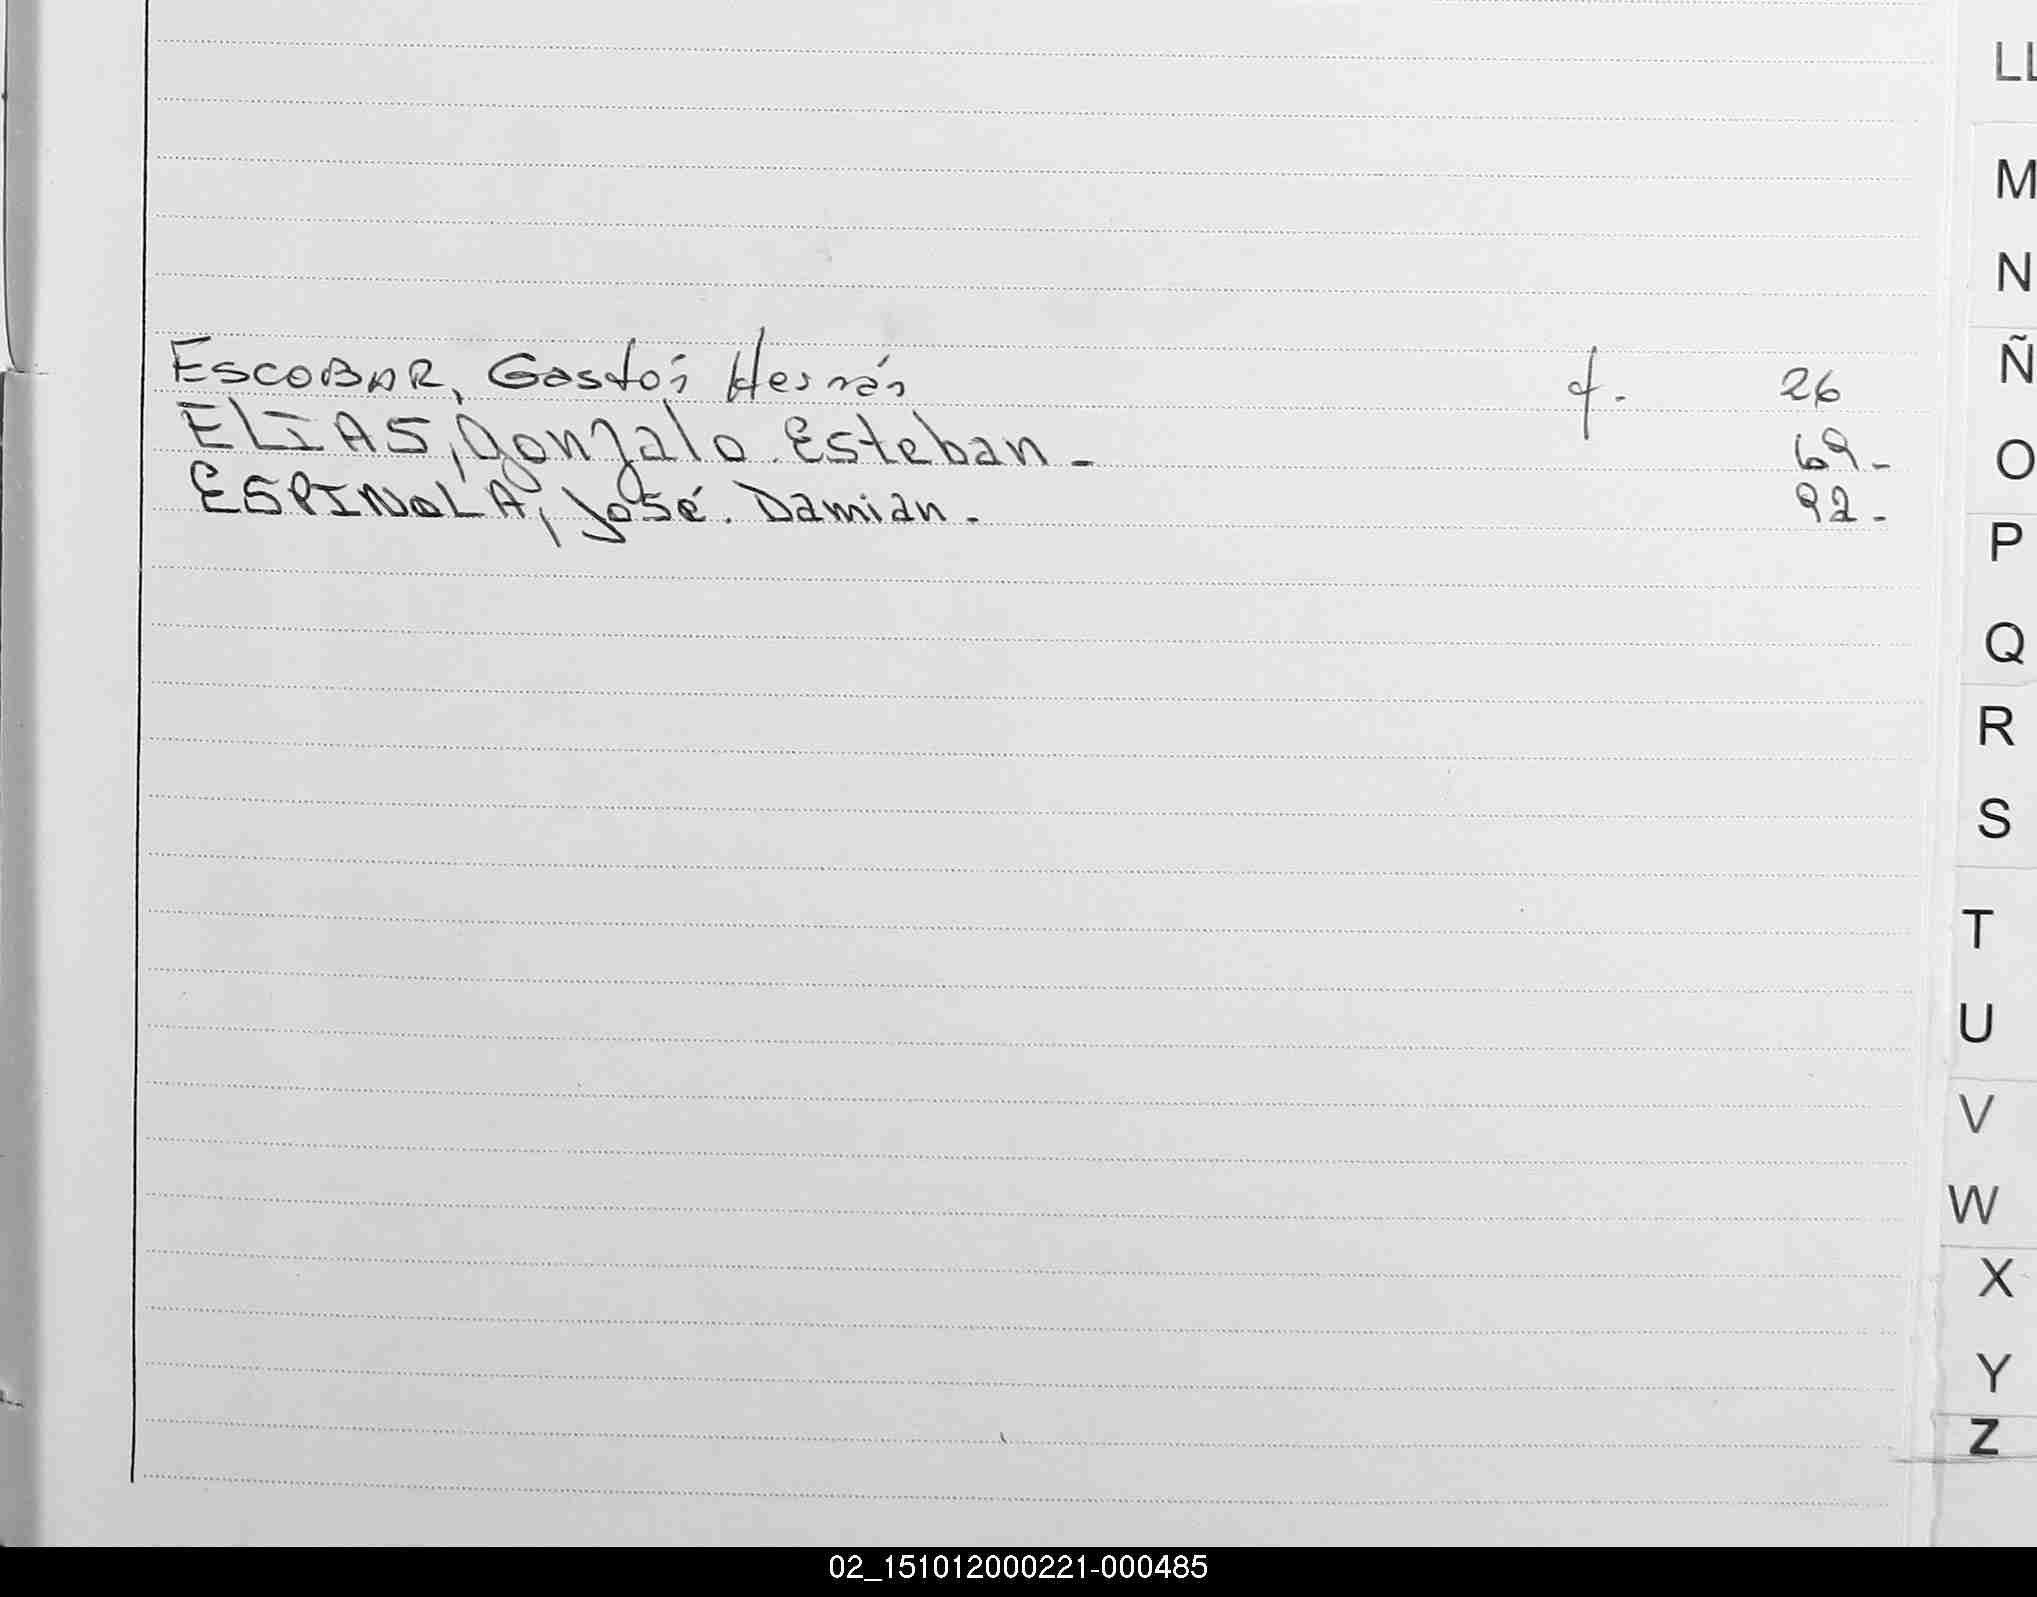 LL
M
N
Ñ
ESCOBAR, Gastón Hernán f. 26
ELIAS, Gonzalo Esteban - 69-
O
ESPINOLA, José. Damian. 92-
P
Q
R
S
T
U
V
W
X
Y
Z
02_151012000221-000485